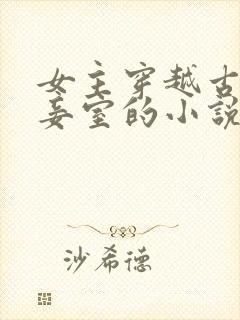 女主穿越古
妾室的小説
沙希德